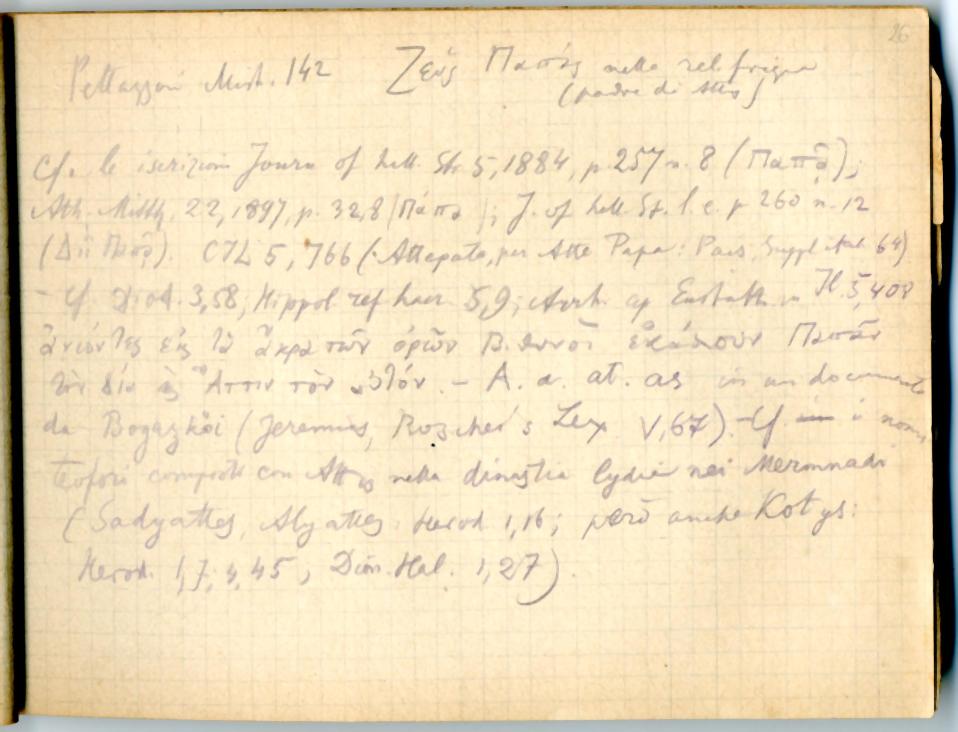 26
Pettazzoni Mist. 142 Ζεύς Παπᾶς nella rel. frigia
(padre di Attis)
Cf. le iscrizioni Journ of hell. St. 5, 1884, p. 257 n. 8 (Παπᾷ);
Ath. Mitth. 22, 1897, p. 32,8 (Πάπα); J. of hell. St. l. c. p 260 n. 12
(Διὶ Παπᾷ). CIL 5, 766 (Attepata, per Atte Papa: Pais, Suppl. ital. 64)
- Cf. Diod. 3,58; Hippol ref haer. 5,9; Arrh. ap Eustath. Il. 5, 408
ἀνιόντες εἰς τὰ ἄκρα τῶν ὀρῶν Βιθυνοὶ ἐκάλουν Παπᾶν
τὸν Δία Ἄττιν τὸν αὐτόν. - A. a. at. as in un documento
da Bogazköi (Jeremias, Roscher's Lex V, 67). - Cf. i nomi
teofori composti con Attis nella dinastia lydia nei Mermnadi
(Sadyattes, Alyattes: Herod. 1,16; però anche Kotys:
Herod. 1,7; 4,45; Dion. Hal. 1,27).